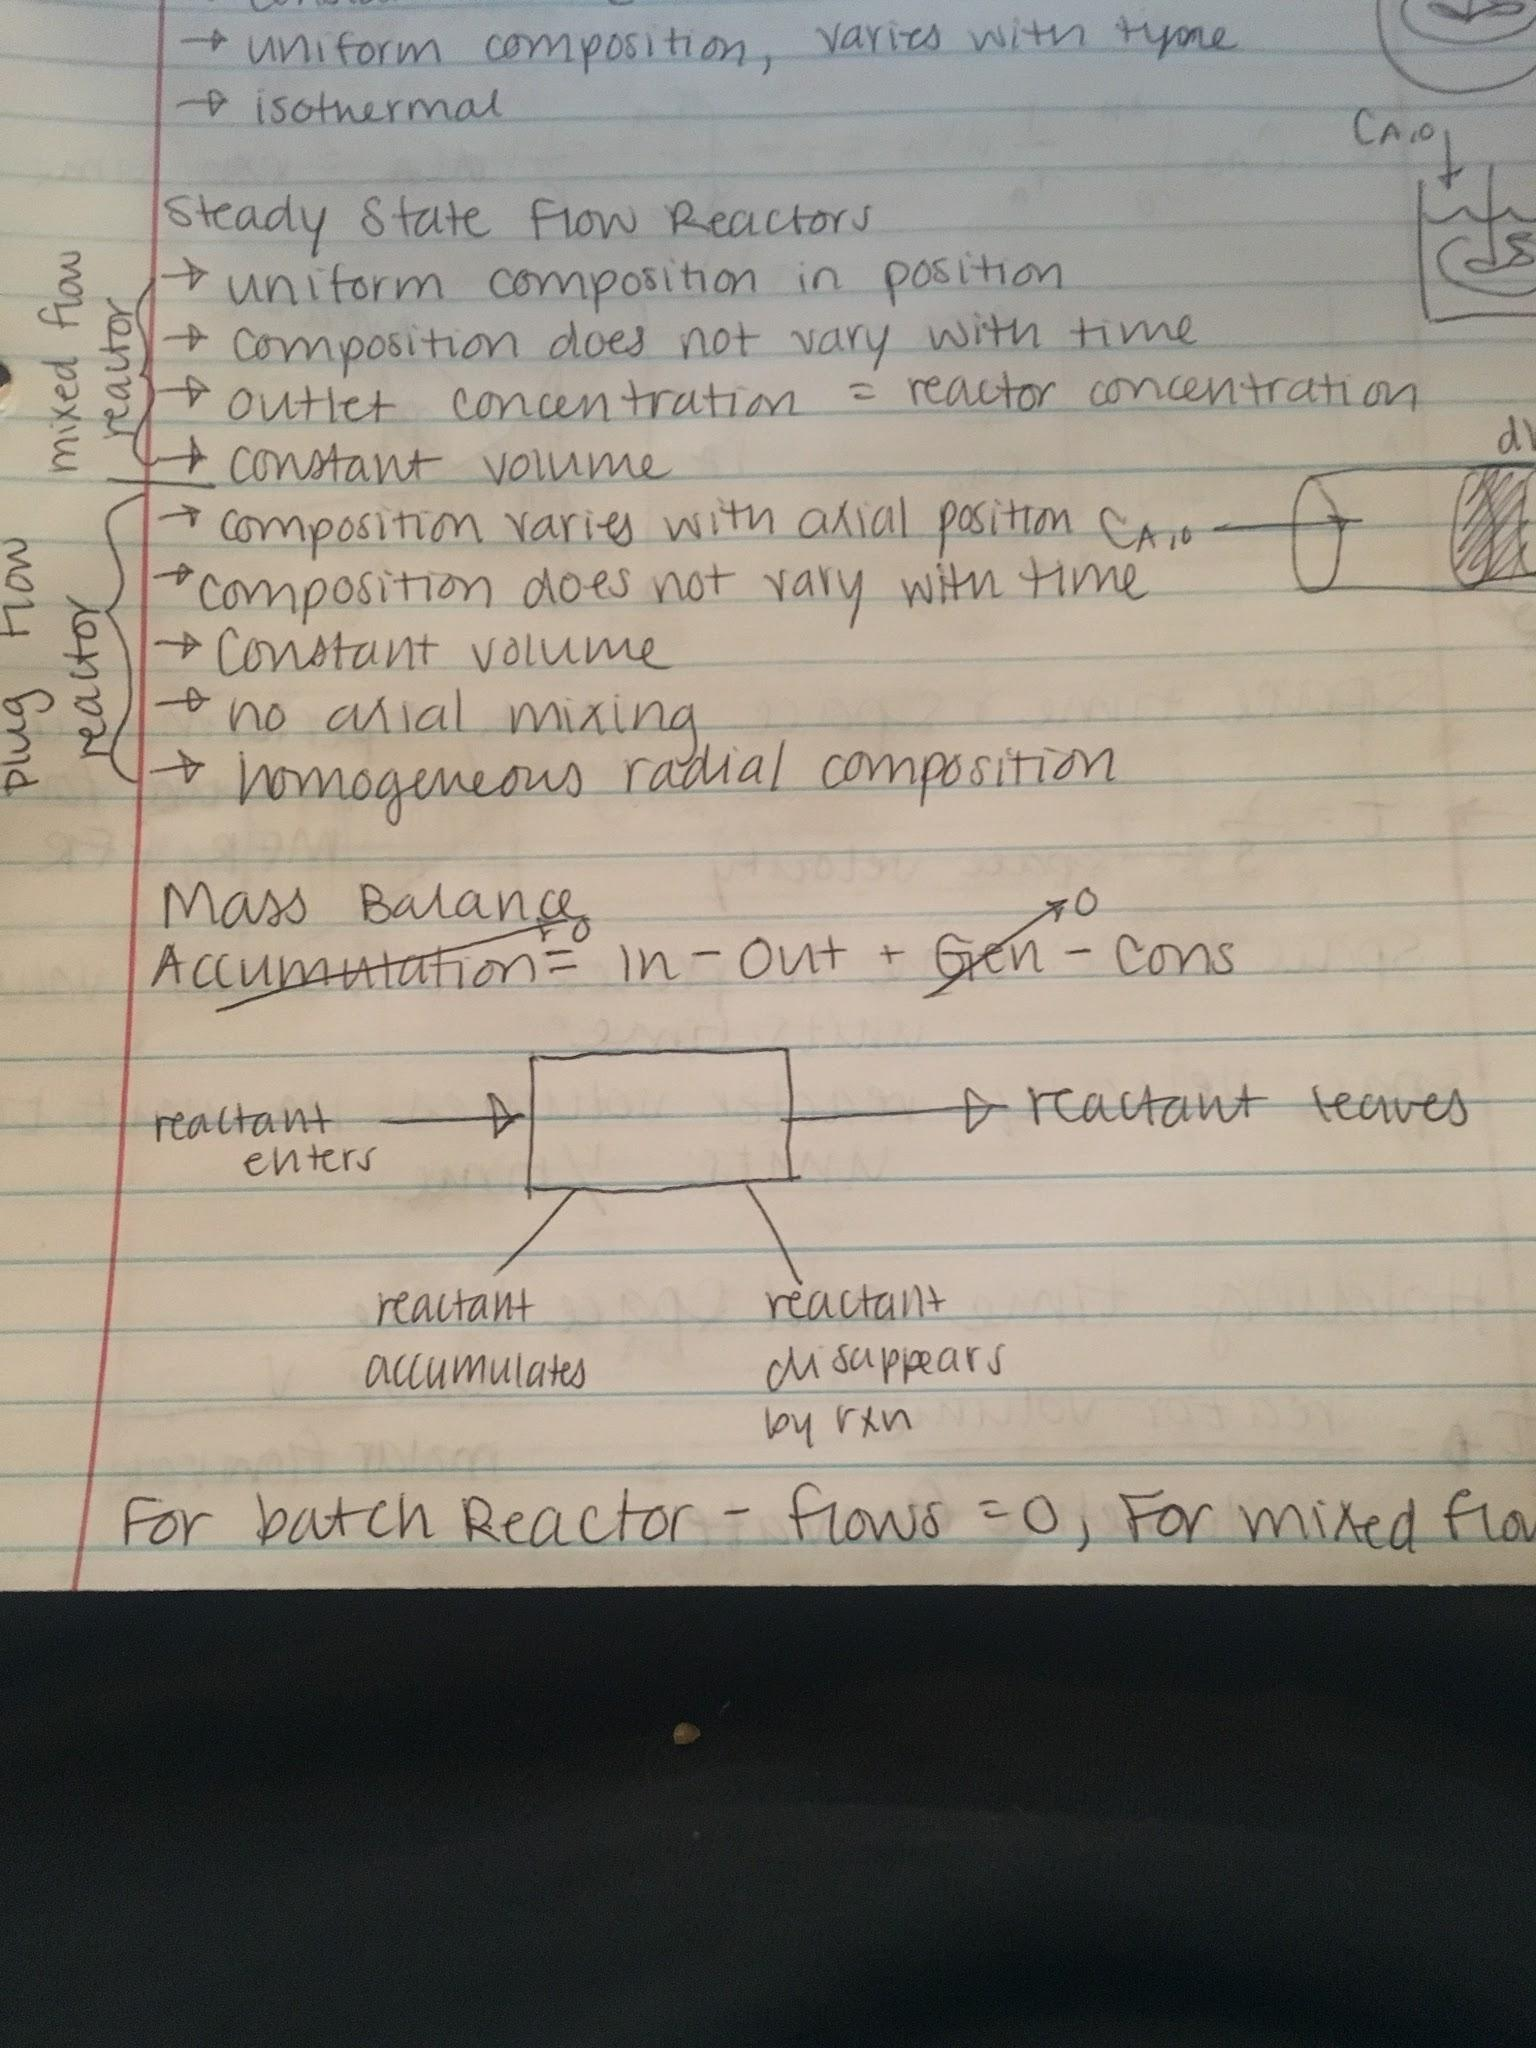 → uniform composition, varies with tyme
→ isothermal
CA,0
Steady State Flow Reactors
mixed flow reactor
→ uniform composition in position
→ composition does not vary with time
→ outlet concentration = reactor concentration
→ constant volume
plug flow reactor
→ composition varies with axial position CA,0
→ composition does not vary with time
→ constant volume
→ no axial mixing
→ homogeneous radial composition
Mass Balance
Accumulation = In - Out + Gen - Cons
0
0
reactant enters
reactant leaves
reactant accumulates
reactant disappears by rxn
For batch Reactor - flows = 0, For mixed flow